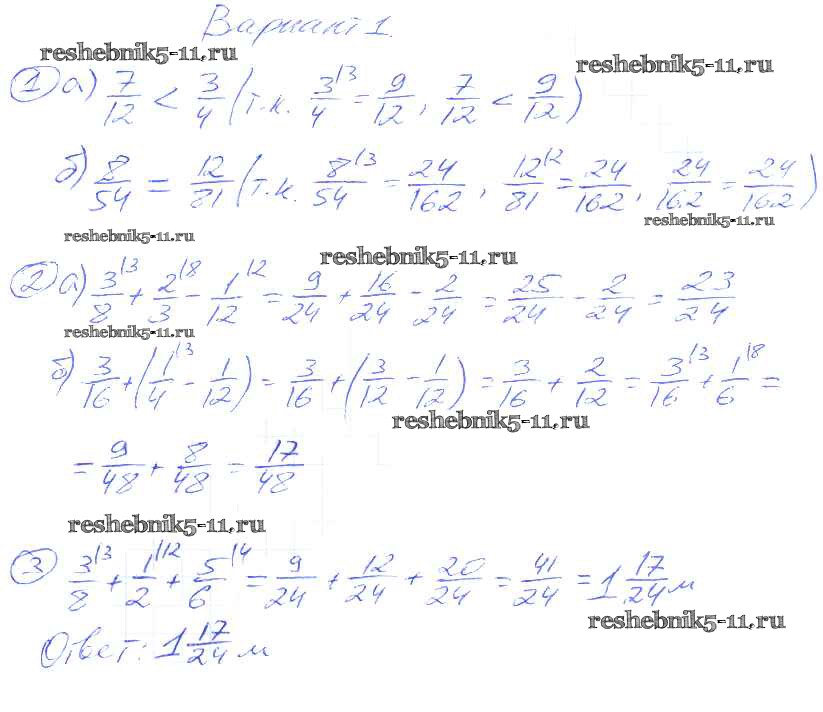 Вариант 1.
reshebnik5-11.ru
reshebnik5-11.ru
① а) 7/12 < 3/4 (т.к. 3/4 |3 = 9/12, 7/12 < 9/12)
б) 8/54 = 12/81 (т.к. 8/54 |3 = 24/162, 12/81 |2 = 24/162, 24/162 = 24/162)
reshebnik5-11.ru
reshebnik5-11.ru
reshebnik5-11.ru
② а) 3/8 |3 + 2/3 |8 - 1/12 |2 = 9/24 + 16/24 - 2/24 = 25/24 - 2/24 = 23/24
reshebnik5-11.ru
б) 3/16 + (1/4 |3 - 1/12) = 3/16 + (3/12 - 1/12) = 3/16 + 2/12 = 3/16 |3 + 1/6 |8 =
reshebnik5-11.ru
= 9/48 + 8/48 = 17/48
reshebnik5-11.ru
③ 3/8 |3 + 1/2 |12 + 5/6 |4 = 9/24 + 12/24 + 20/24 = 41/24 = 1 17/24 м
reshebnik5-11.ru
Ответ: 1 17/24 м